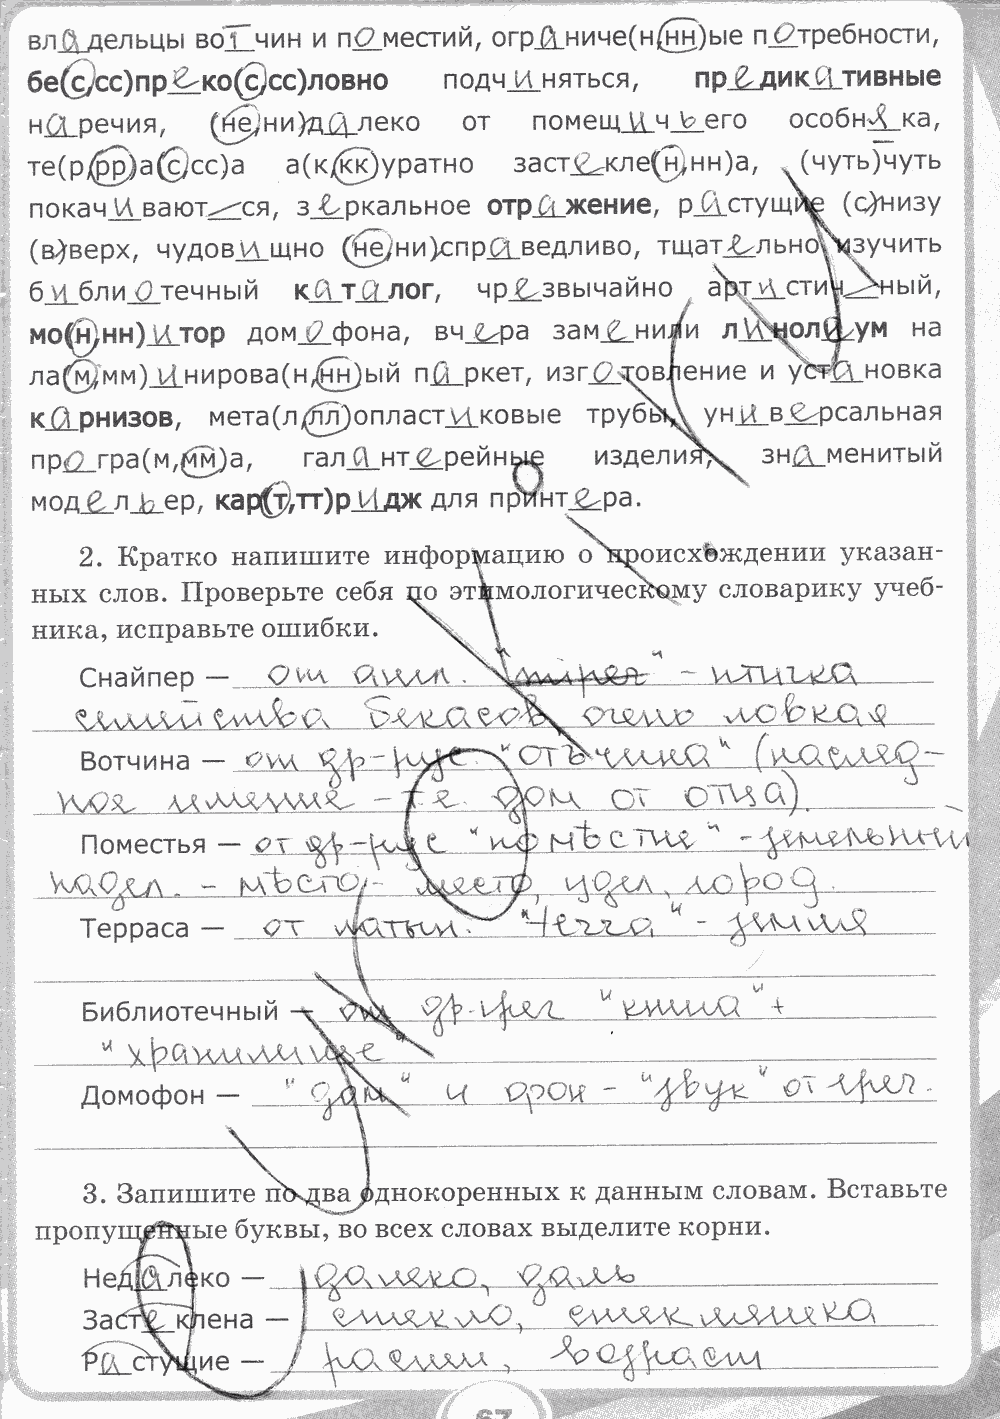 вл а дельцы во т чин и п о местий, огр а ниче(н,нн)ые п о требности,
бе(с,сс)пр е ко(с,сс)ловно подч и няться, пр е дик а тивные
н а речия, (не,ни)д а леко от помещ и ч ь его особн я ка,
те(р,рр)а(с,сс)а а(к,кк)уратно заст е кле(н,нн)а, (чуть)чуть
покач и вают ся, з е ркальное отр а жение, р а стущие (с)низу
(в)верх, чудов и щно (не,ни)спр а ведливо, тщат е льно изучить
б и бли о течный к а т а лог, чр е звычайно арт и стич ный,
мо(н,нн) и тор дом о фона, вч е ра зам е нили л и нол е ум на
ла(м,мм) и нирова(н,нн)ый п а ркет, изг о товление и уст а новка
к а рнизов, мета(л,лл)опласт и ковые трубы, ун и в е рсальная
пр о гра(м,мм)а, гал а нт е рейные изделия, зн а менитый
мод е л ь ер, кар(т,тт)р и дж для принт е ра.
2. Кратко напишите информацию о происхождении указан-
ных слов. Проверьте себя по этимологическому словарику учеб-
ника, исправьте ошибки.
Снайпер — от англ. - птичка
семейства бекасов, очень ловкая
Вотчина — от др-рус. "отьчина" (наслед-
ное имение - т.е. дом от отца).
Поместья — от др-рус "помѣстие" - земельный
надел. - мѣсто - место, удел, город.
Терраса — от латын. "Terra" - земля
Библиотечный — от др-грег "книга" +
"хранилище"
Домофон — "дом" и фон - "звук" от греч.
3. Запишите по два однокоренных к данным словам. Вставьте
пропущенные буквы, во всех словах выделите корни.
Нед а леко — далеко, даль
Заст е клена — стекло, стекляшка
Р а стущие — расти, возраст
67
УРОКИ.ГУРУ